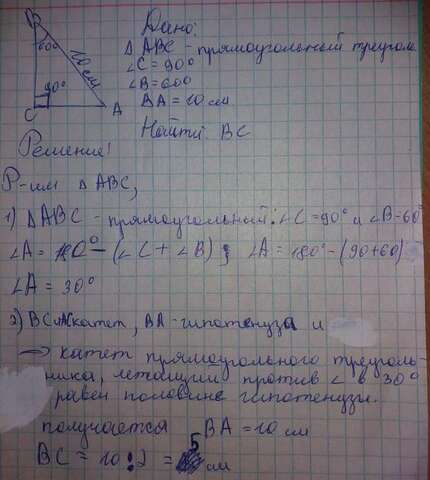 B
60° 10 см
90°
C A
Дано:
△ ABC - прямоугольный треугол.
∠C = 90°
∠B = 60°
BA = 10 см
Найти: BC
Решение:
Р-им △ ABC,
1) △ ABC - прямоугольный: ∠C = 90° и ∠B - 60°
∠A = 180° - (∠C + ∠B); ∠A = 180° - (90 + 60)
∠A = 30°
2) BC катет, BA - гипотенуза и
⇒ катет прямоугольного треуголь-
ника, лежащий против ∠ в 30°
равен половине гипотенузы.
получается BA = 10 см
BC = 10 : 2 = 5 см